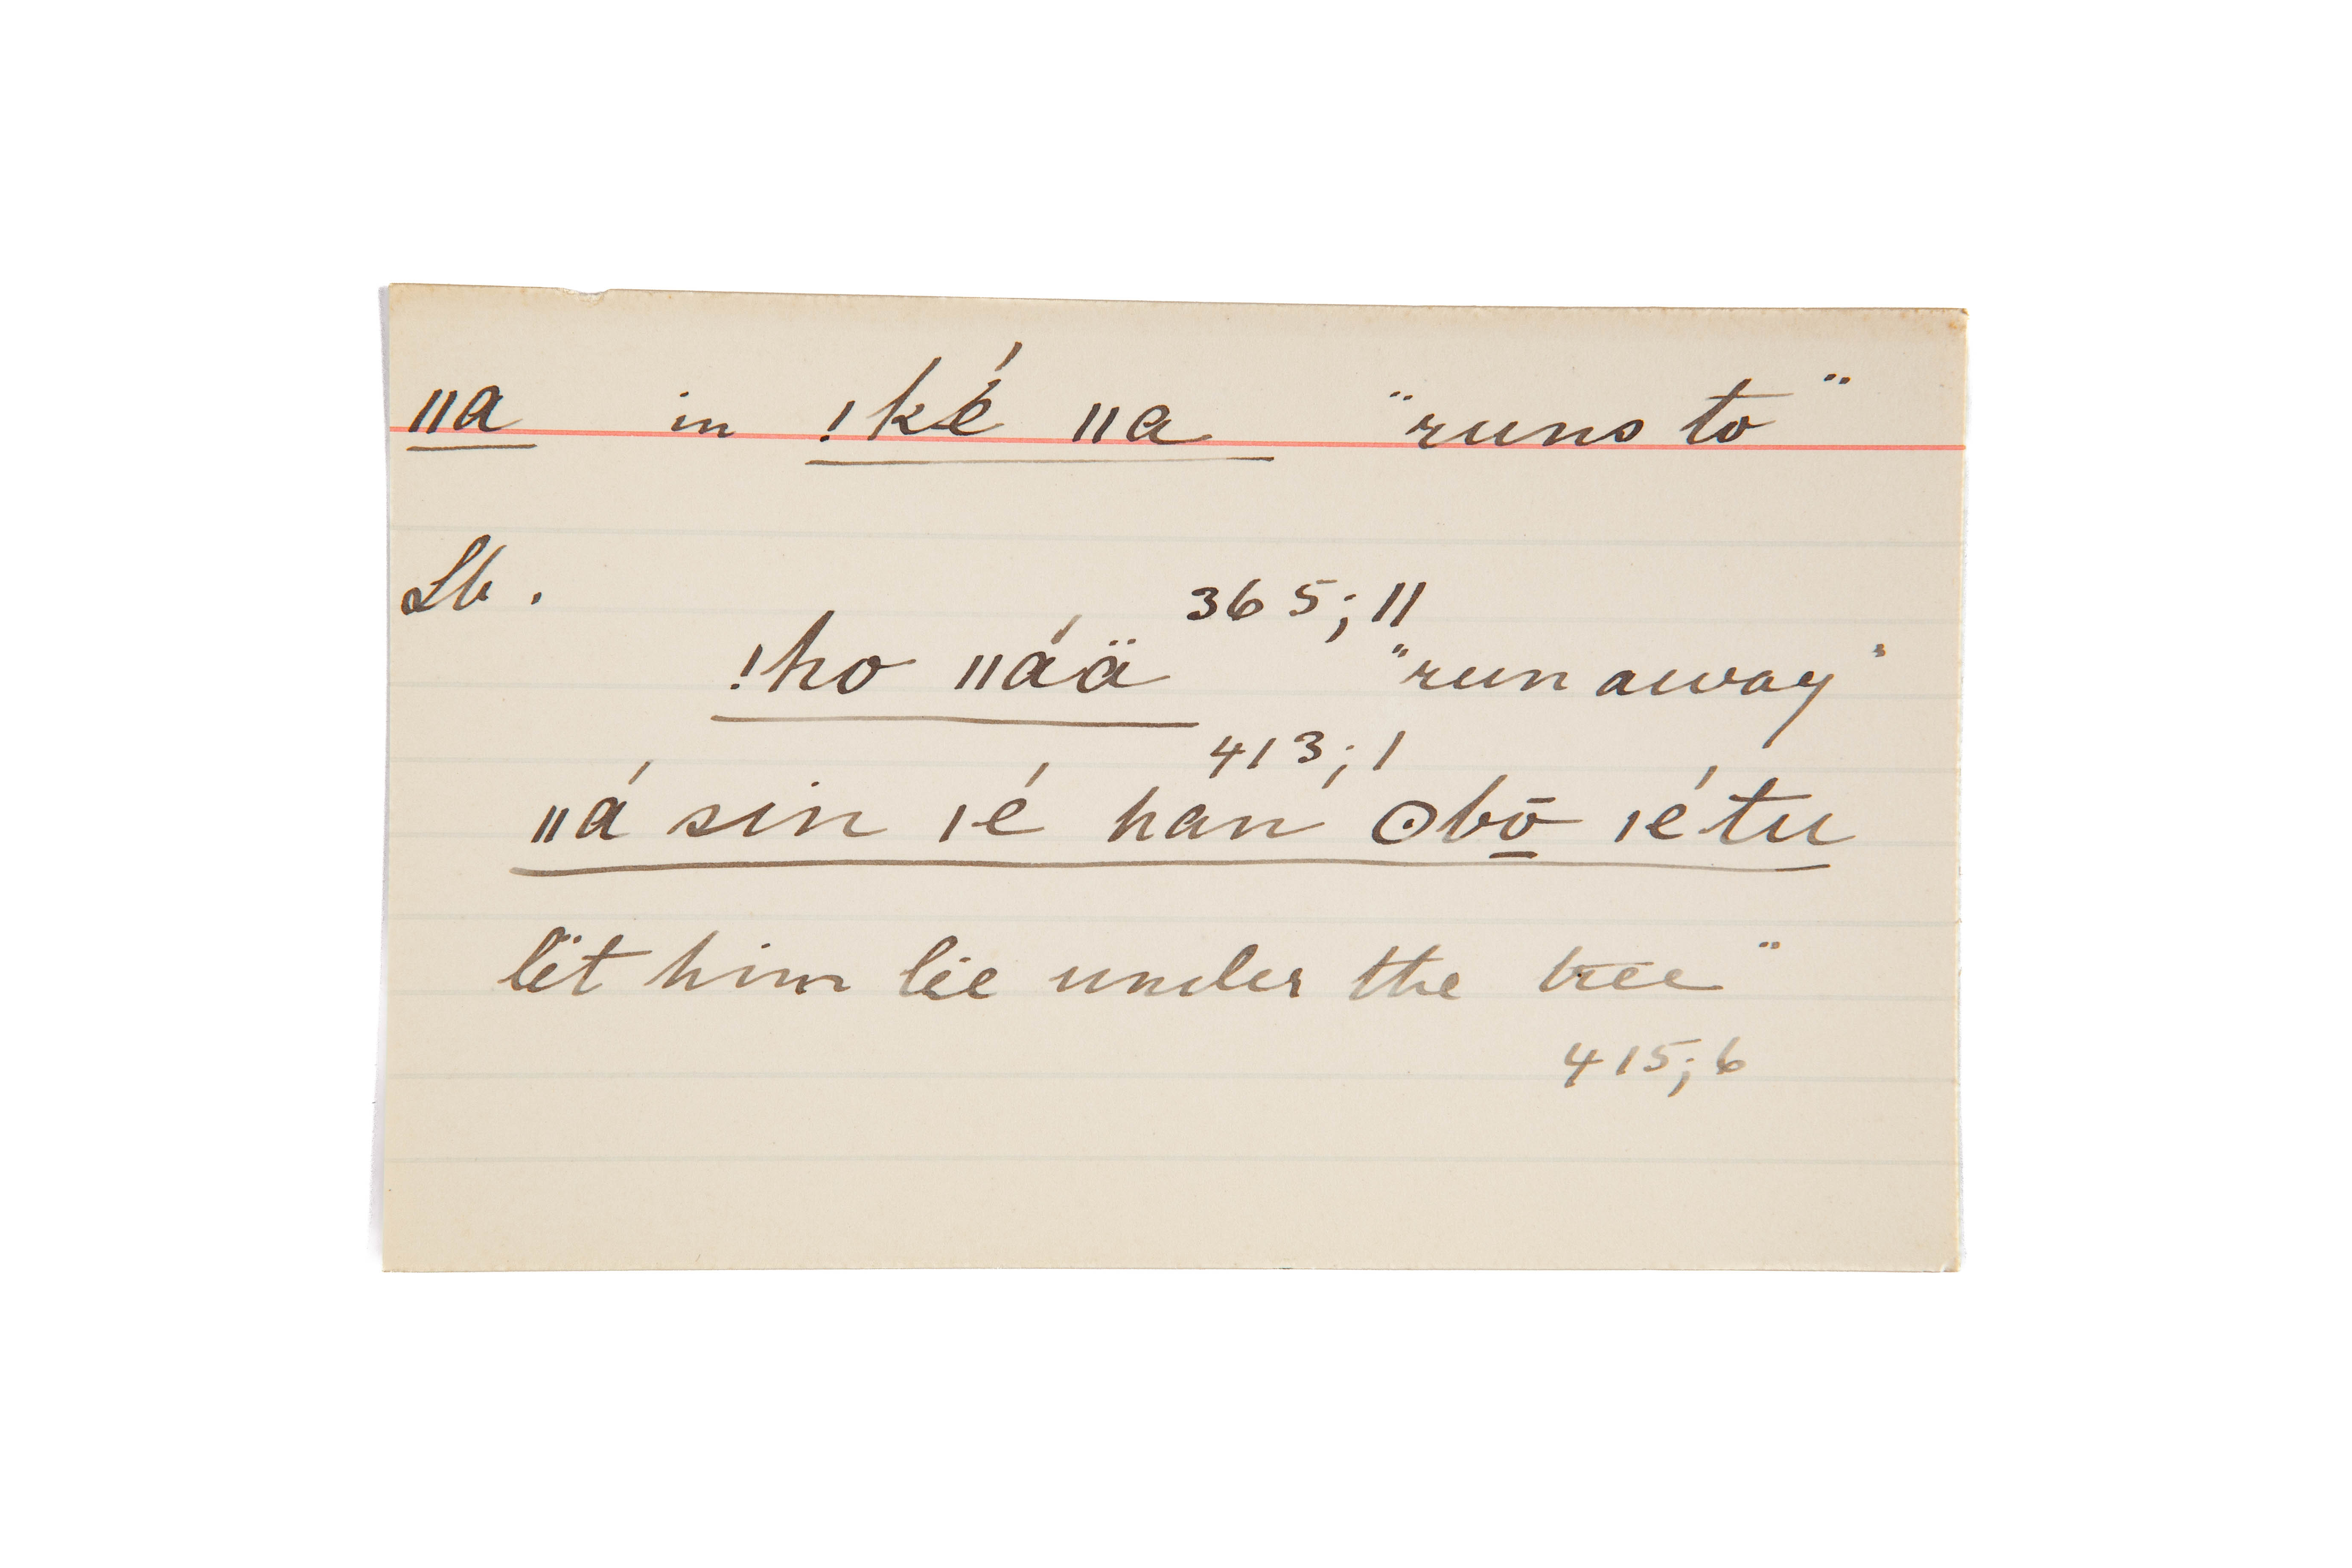 ǁa in !ké ǁa "runs to"
Lb. 365; 11
!ho ǁáä "run away"
413; 1
ǁá sin ǀé han ʘbō̠ ǀétu
"let him lie under the tree"
415; 6